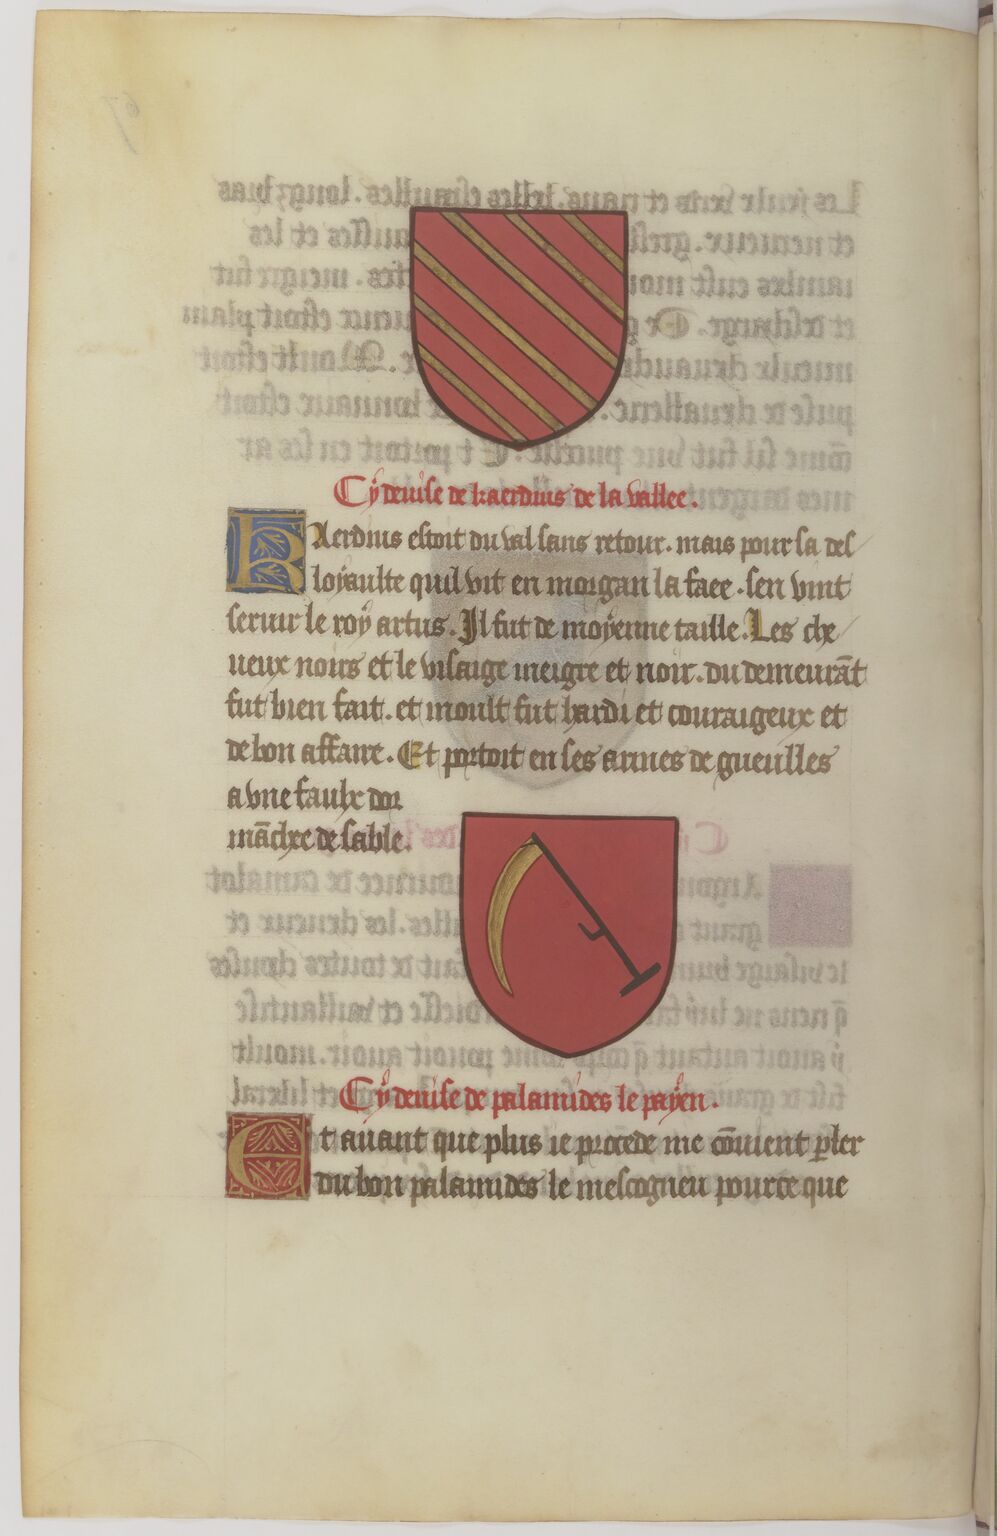 Cy deuise de kaerdius de la vallee.
Kaerdius estoit du val sans retour. mais pour sa des
loyaulte quil vit en morgan la faee. sen vint
seruir le roy artus. Il fut de moyenne taille. Les che
ueux noirs et le visaige meigre et noir. du demeurãt
fut bien fait. et moult fut hardi et couraigeux et
de bon affaire. Et portoit en ses armes de gueulles
a vne faulx dor
mãchee de sable.
Cy deuise de palamides le payen.
Et auant que plus ie procede me cõuient p̱ler
du bon palamides le mescogneu pource que